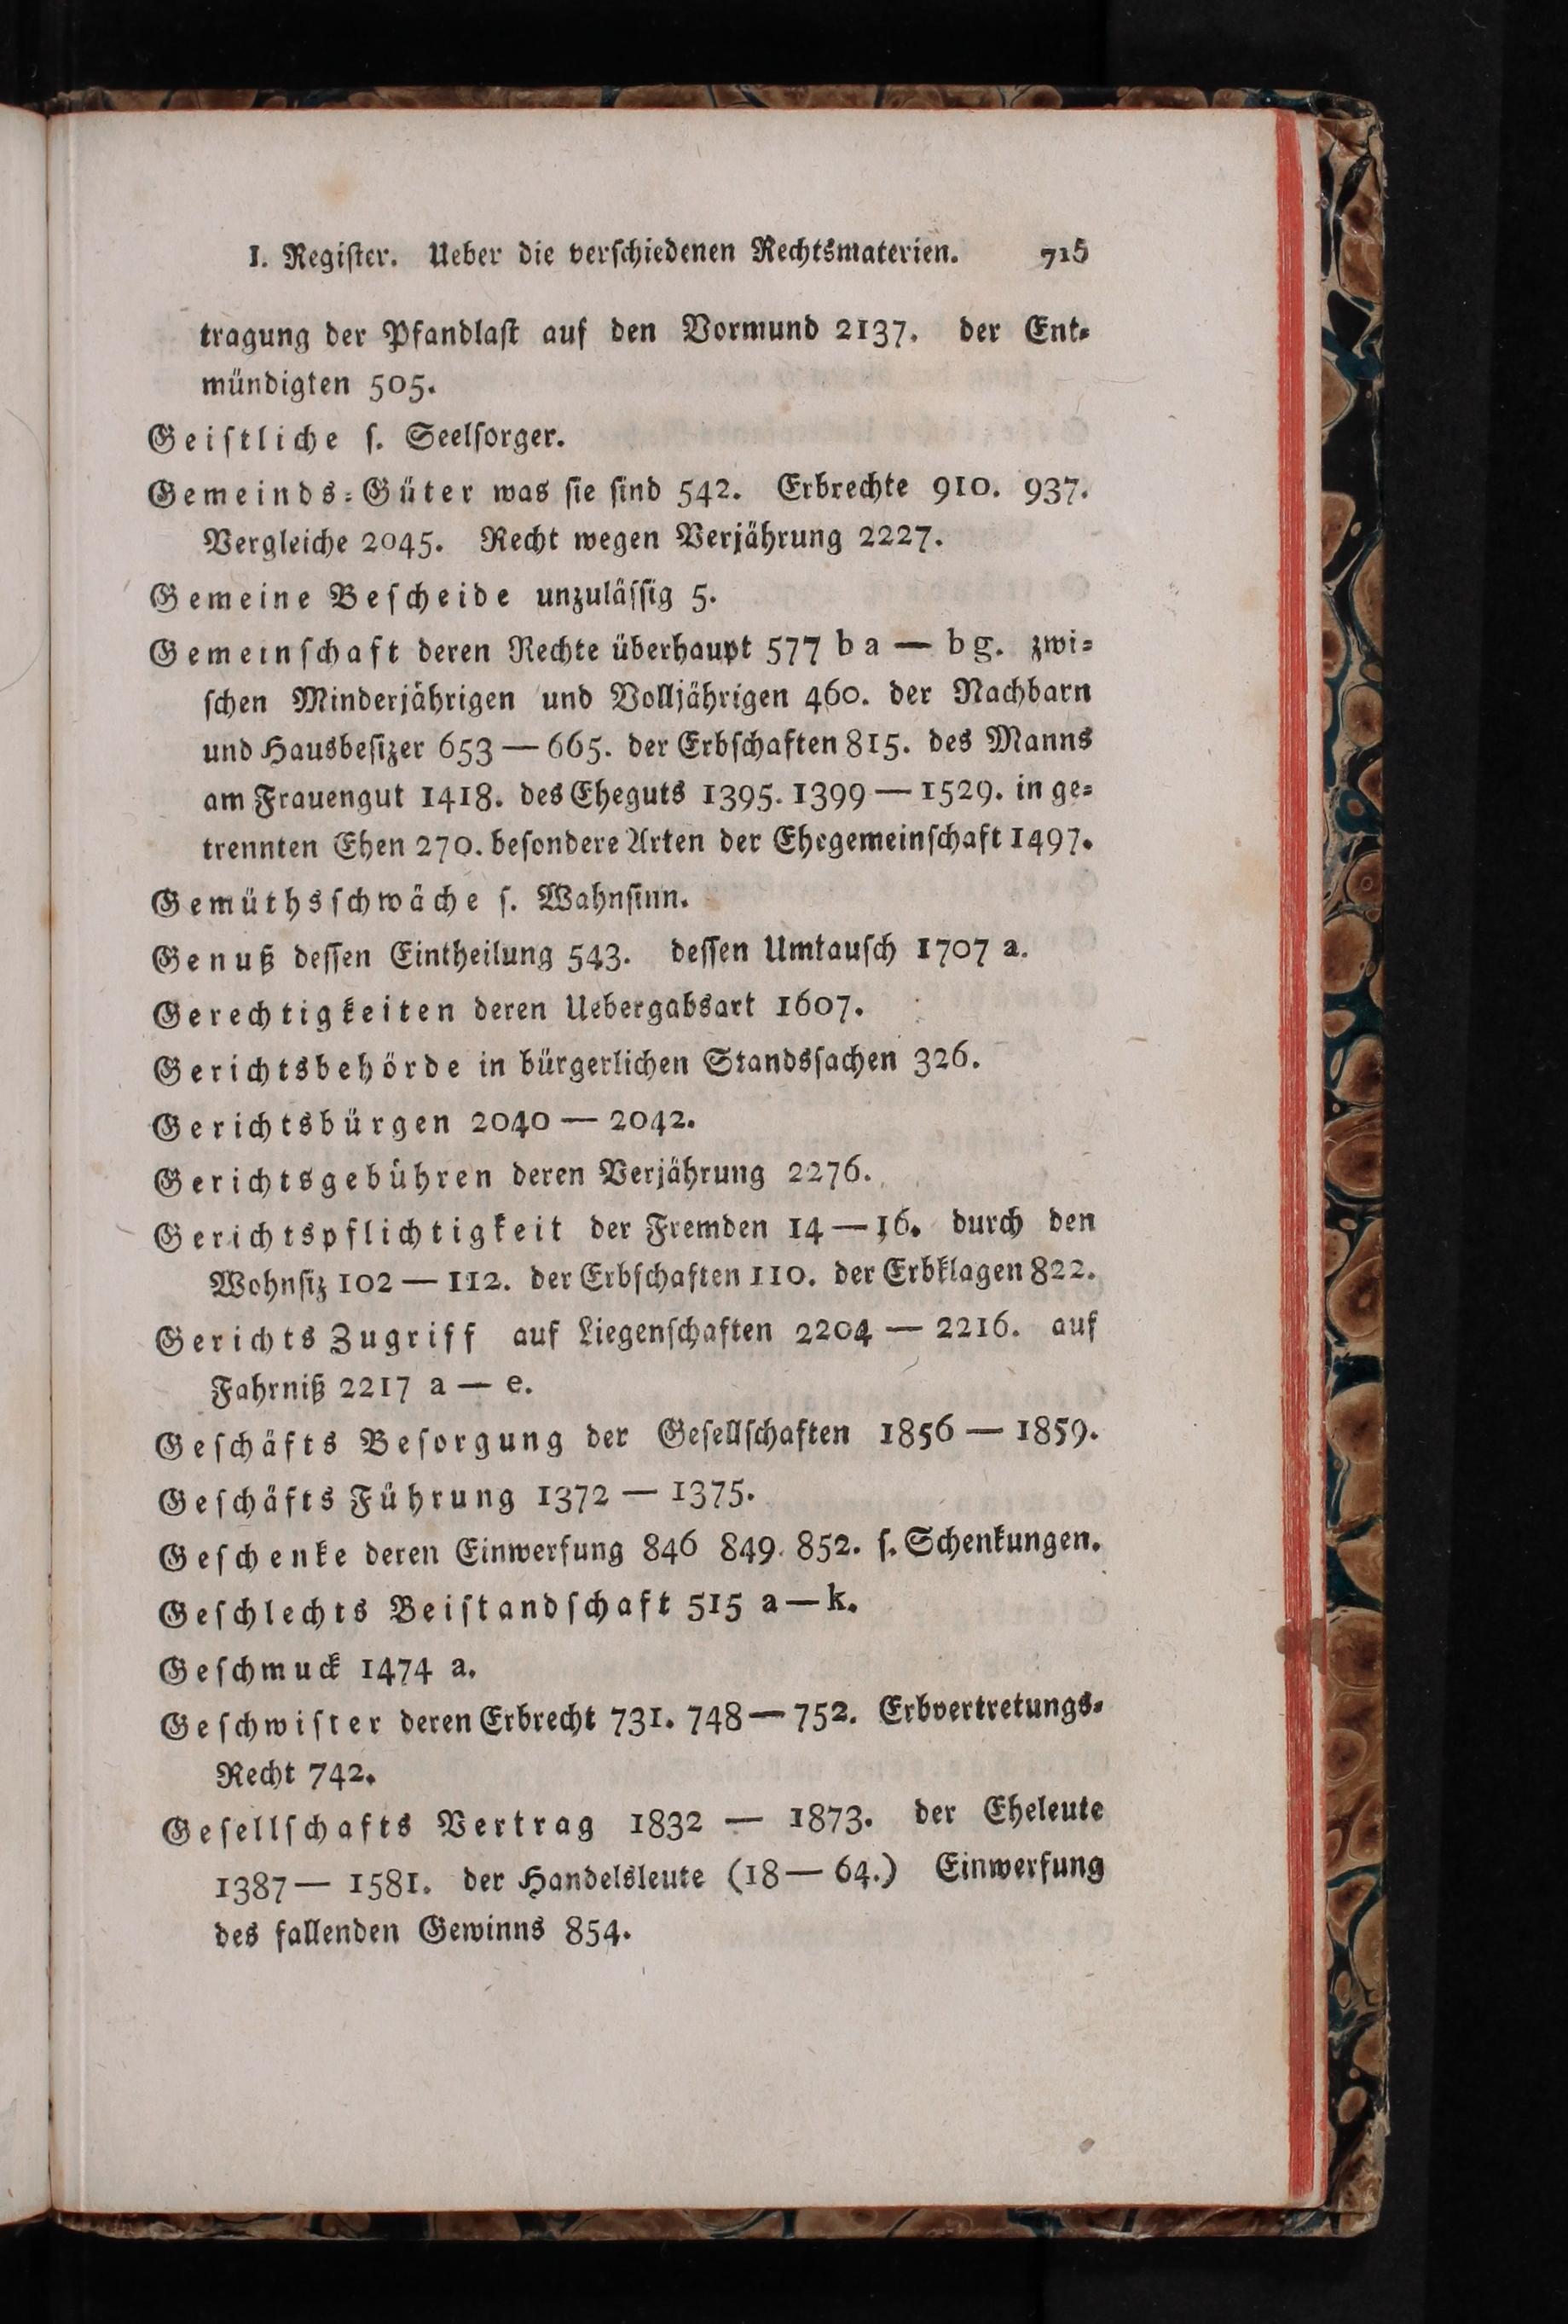 I. Regiſter. Ueber die verſchiedenen Rechtsmaterien. 715
tragung der Pfandlaſt auf den Vormund 2137. der Ent⸗
mündigten 505.
Geiſtliche ſ. Seelſorger.
Gemeinds⸗Güter was ſie ſind 542. Erbrechte 910. 937.
Vergleiche 2045. Recht wegen Verjährung 2227.
Gemeine Beſcheide unzuläſſig 5.
Gemeinſchaft deren Rechte überhaupt 577 b a — b g. zwi⸗
ſchen Minderjährigen und Volljährigen 460. der Nachbarn
und Hausbeſizer 653 — 665. der Erbſchaften 815. des Manns
am Frauengut 1418. des Eheguts 1395. 1399 — 1529. in ge⸗
trennten Ehen 270. beſondere Arten der Ehegemeinſchaft 1497.
Gemüthsſchwäche ſ. Wahnſinn.
Genuß deſſen Eintheilung 543. deſſen Umtauſch 1707 a.
Gerechtigkeiten deren Uebergabsart 1607.
Gerichtsbehörde in bürgerlichen Standsſachen 326.
Gerichtsbürgen 2040 — 2042.
Gerichtsgebühren deren Verjährung 2276.
Gerichtspflichtigkeit der Fremden 14 — 16. durch den
Wohnſiz 102 — 112. der Erbſchaften 110. der Erbklagen 822.
Gerichts Zugriff auf Liegenſchaften 2204 — 2216. auf
Fahrniß 2217 a — e.
Geſchäfts Beſorgung der Geſellſchaften 1856 — 1859.
Geſchäfts Führung 1372 — 1375.
Geſchenke deren Einwerfung 846 849. 852. ſ. Schenkungen.
Geſchlechts Beiſtandſchaft 515 a — k.
Geſchmuck 1474 a.
Geſchwiſter deren Erbrecht 731. 748 — 752. Erbvertretungs⸗
Recht 742.
Geſellſchafts Vertrag 1832 — 1873. der Eheleute
1387 — 1581. der Handelsleute (18 — 64.) Einwerfung
des fallenden Gewinns 854.